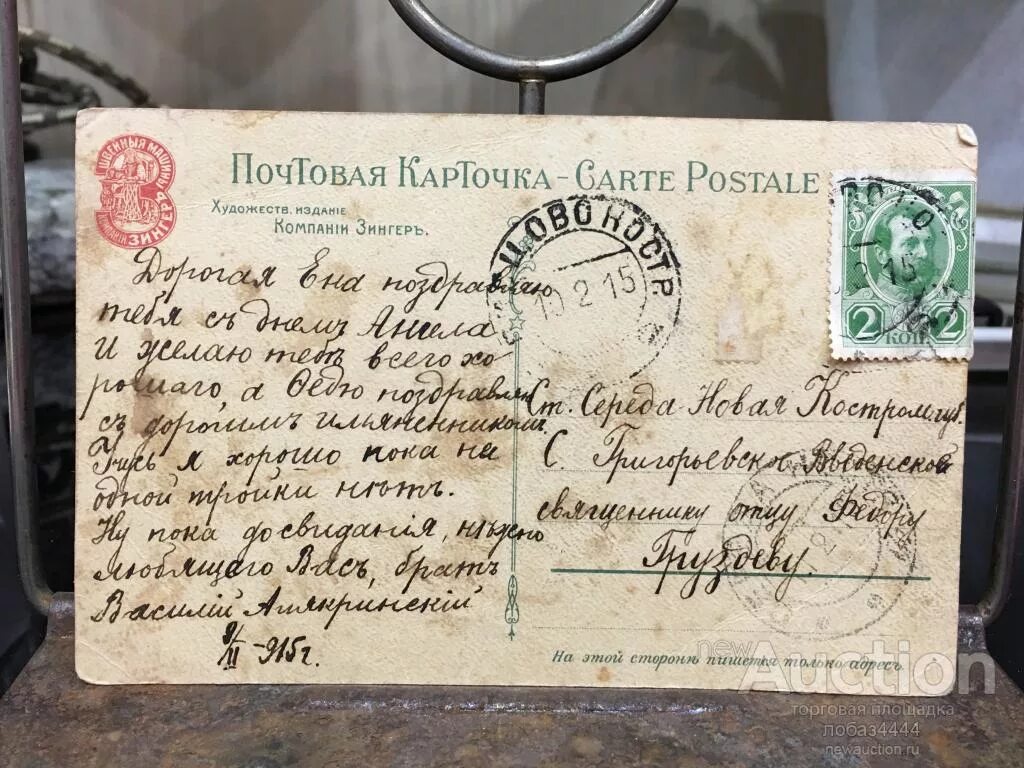 ШВЕЙНЫЯ МАШИНЫ
КОМПАНIИ ЗИНГЕРЪ
ПОЧТОВАЯ КАРТОЧКА – CARTE POSTALE
ХУДОЖЕСТВ. ИЗДАНIЕ
КОМПАНIИ ЗИНГЕРЪ.
ЦОВО КОСТР.
10 2 15
2 КОП. 2
Дорогая Ена поздравляю
тебя съ днемъ Ангела
И желаю тебѣ всего хо
рошаго, а Федю поздравляю
съ дорогимъ имянинникомъ.
Учусь я хорошо пока ни
одной тройки нѣтъ.
Ну пока до свиданія, нѣжно
любящего Васъ, братъ
Василій Атякринскій
9/II -915 г.
Ст. Середа Новая Костром. губ.
С. Григорьевское Введенской
священнику отцу Федору
Груздеву.
На этой сторонѣ пишется только адресъ.
newAuction
торговая площадка
лобаз4444
newauction.ru